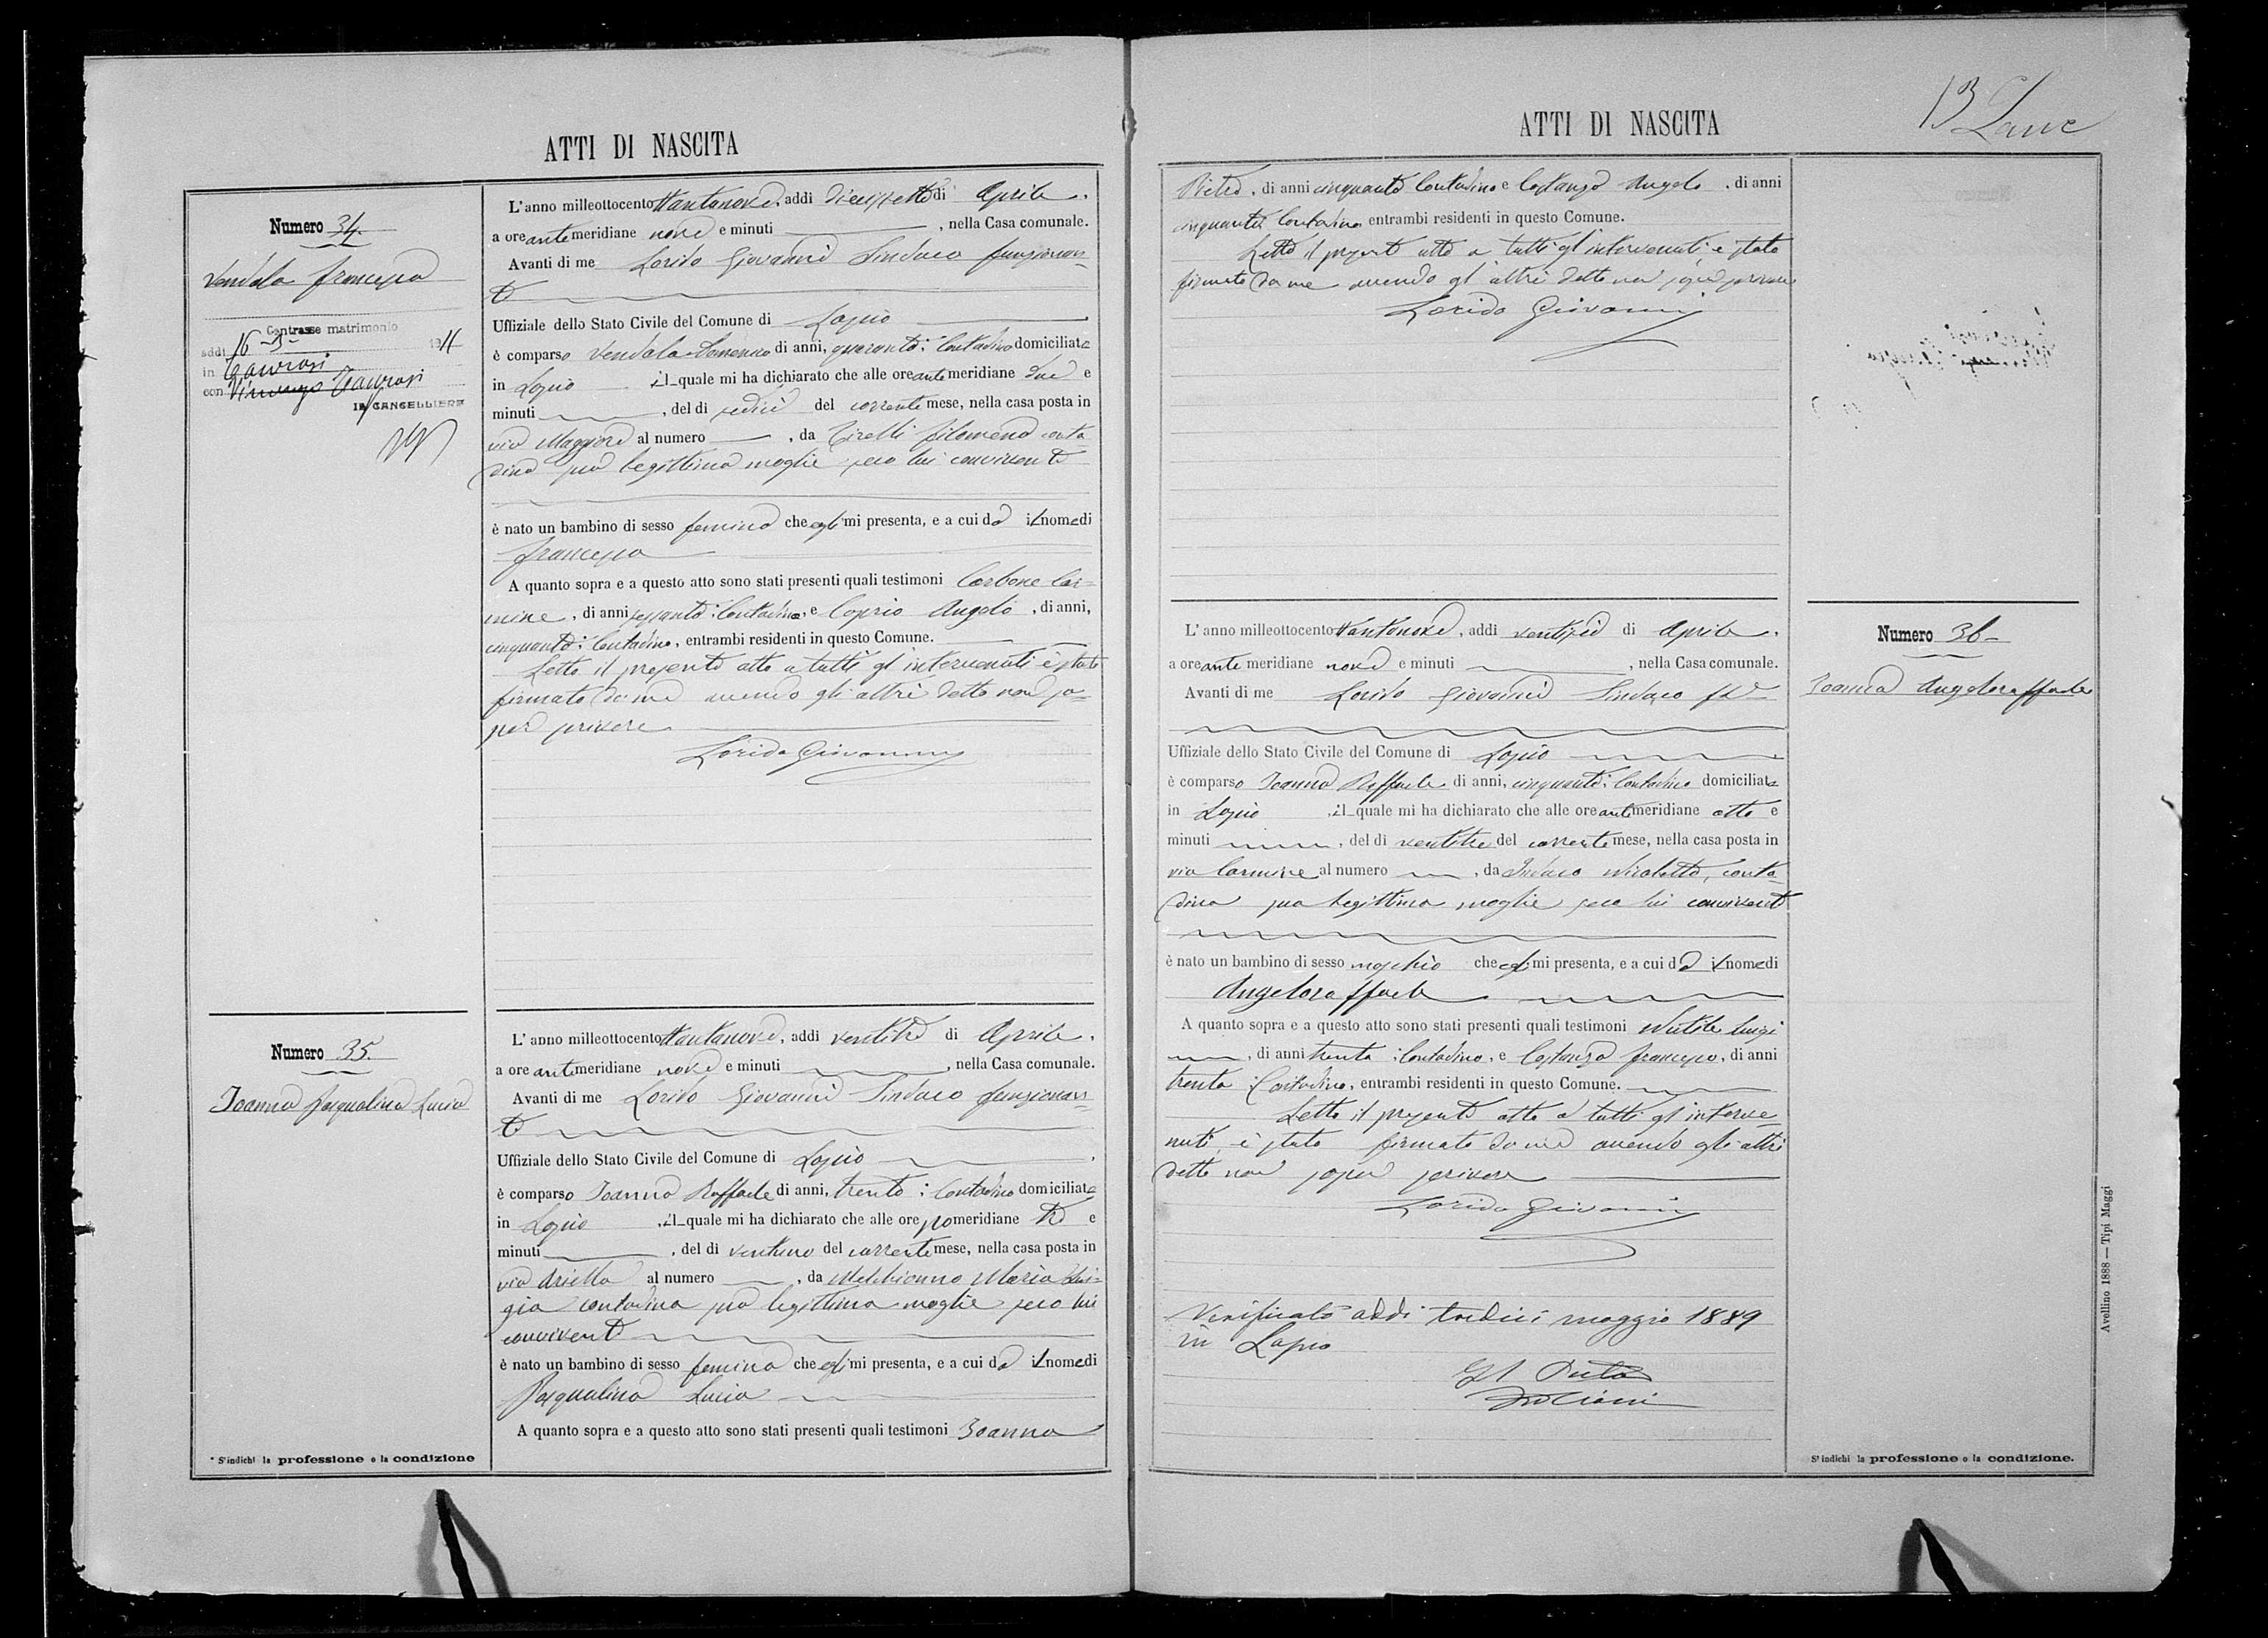 ATTI DI NASCITA
Numero 34.
Vendola Francesca
Contrasse matrimonio
addi 16-5- 1911
in Taurasi
con Vincenzo Taurasi
IL CANCELLIERE
L'anno milleottocento ttantanove, addi diecissette di Aprile,
a ore antemeridiane nove e minuti , nella Casa comunale.
Avanti di me Lorido Giovanni Sindaco funzionan-
te
Uffiziale dello Stato Civile del Comune di Lapio
è comparso Vendola Domenico di anni, quaranta: Contadino domiciliato
in Lapio il quale mi ha dichiarato che alle ore antemeridiane due e
minuti , del di sedici del corrente mese, nella casa posta in
via Maggiore al numero , da Cirelli Filomena conta-
dina sua legittima moglie seco lui convivente
è nato un bambino di sesso femina che egli mi presenta, e a cui dà il nome di
Francesca
A quanto sopra e a questo atto sono stati presenti quali testimoni Carbone Car-
mine, di anni sessanta: Contadino, e Caprio Angelo, di anni,
cinquanta: Contadino, entrambi residenti in questo Comune.
Letto il presente atto a tutti gl'intervenuti è stato
firmato da me avendo gli altri detto non sa-
per scrivere
Lorido Giovanni
Numero 35.
Ioanna Pasqualina Lucia
L'anno milleottocento ttantanove, addi ventitre di Aprile,
a ore antemeridiane nove e minuti , nella Casa comunale.
Avanti di me Lorido Giovanni Sindaco funzionan-
te
Uffiziale dello Stato Civile del Comune di Lapio
è comparso Ioanna Raffaele di anni, trenta: Contadino domiciliato
in Lapio, il quale mi ha dichiarato che alle ore pomeridiane tre e
minuti , del di ventuno del corrente mese, nella casa posta in
via Ariella al numero , da Melchionno Maria Lui-
gia contadina sua legittima moglie seco lui
convivente
è nato un bambino di sesso femina che egli mi presenta, e a cui dà il nome di
Pasqualina Lucia
A quanto sopra e a questo atto sono stati presenti quali testimoni Ioanna
* S'indichi la professione o la condizione
ATTI DI NASCITA
13
Pietro, di anni cinquanta Contadino e Costanzo Angelo, di anni
cinquanta Contadino entrambi residenti in questo Comune.
Letto il presente atto a tutti gl'intervenuti, è stato
firmato da me avendo gl'altri detto non saper scrivere
Lorido Giovanni
L'anno milleottocento ttantanove, addi ventisei di Aprile,
a ore antemeridiane nove e minuti , nella Casa comunale.
Avanti di me Lorido Giovanni Sindaco
Uffiziale dello Stato Civile del Comune di Lapio
è comparso Ioanna Raffaele di anni, cinquanta: Contadino domiciliato
in Lapio, il quale mi ha dichiarato che alle ore antimeridiane otto e
minuti , del di ventitre del corrente mese, nella casa posta in
via Carmine al numero , da Indaco Nicoletta, conta-
dina sua legittima moglie seco lui convivente
è nato un bambino di sesso maschio che egli mi presenta, e a cui dà il nome di
Angeloraffaele
A quanto sopra e a questo atto sono stati presenti quali testimoni Nutile Luigi
, di anni trenta: Contadino, e Costanzo Francesco, di anni
trenta: Contadino, entrambi residenti in questo Comune.
Letto il presente atto a tutti gl'interve-
nuti, è stato firmato da me avendo gli altri
detto non saper scrivere
Lorido Giovanni
Verificato addi tredici maggio 1889
in Lapio
Numero 36-
Ioanna Angeloraffaele
S'indichi la professione o la condizione.
Avellino 1888 — Tipi Maggi